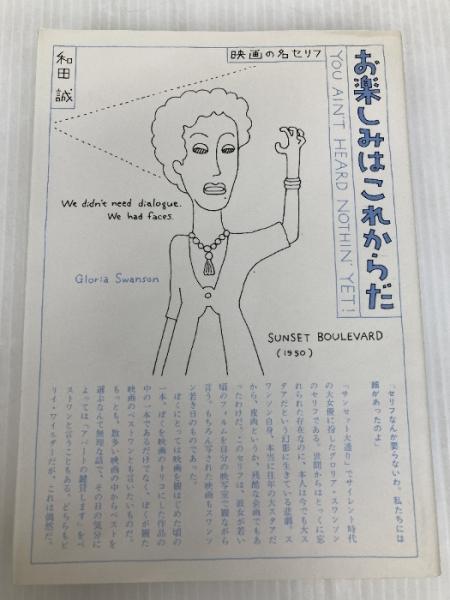 映画の名セリフ
お楽しみはこれからだ
YOU AIN'T HEARD NOTHIN' YET!
和田誠
We didn't need dialogue.
We had faces.
Gloria Swanson
SUNSET BOULEVARD
(1950)
「セリフなんか要らないわ。私たちには
顔があったのよ」
「サンセット大通り」でサイレント時代
の大女優に扮したグロリア・スワンソン
のセリフである。世間からはとっくに忘
れられた存在なのに、本人は今でも大ス
タアだという幻影に生きている悲劇。ス
ワンソン自身、本当に往年の大スタアだ
から、皮肉というか、残酷な企画でもあ
ったわけだ。このセリフは、彼女が若い
頃のフィルムを自分の映写室で観ながら
言う。もちろん写される映画もスワンソ
ン若き日のものであった。
ぼくにとっては映画を観はじめた頃の
一本。ぼくを映画のトリコにした作品の
中の一本であるだけでなく、ぼくが観た
映画のベストワンとも言いたいものだ。
もっとも、数多い映画の中からベストを
選ぶなんて無理な話で、その日の気分に
よっては「アパートの鍵貸します」をベ
ストワンと言うこともある。どちらもビ
リイ・ワイルダーだが、これは偶然だ。